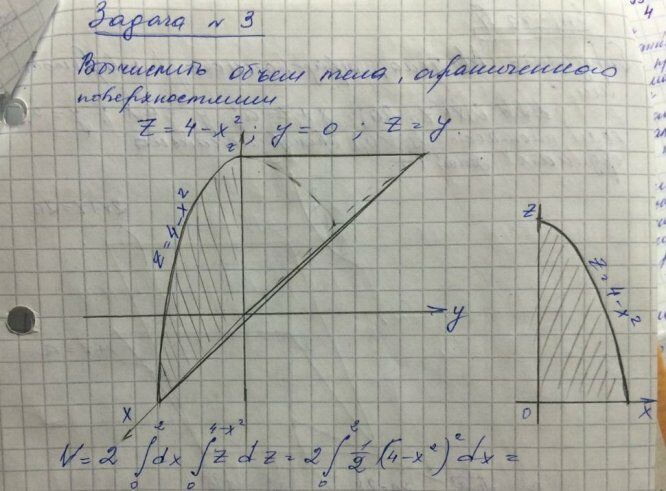 Задача № 3
Вычислить объем тела, ограниченного
поверхностями
Z = 4 - x²; y = 0; Z = y.
z
Z = 4 - x²
y
x
Z
Z = 4 - x²
0
x
V = 2 ∫₀² dx ∫₀^{4-x²} z dz = 2 ∫₀² 1/2 (4 - x²)² dx =